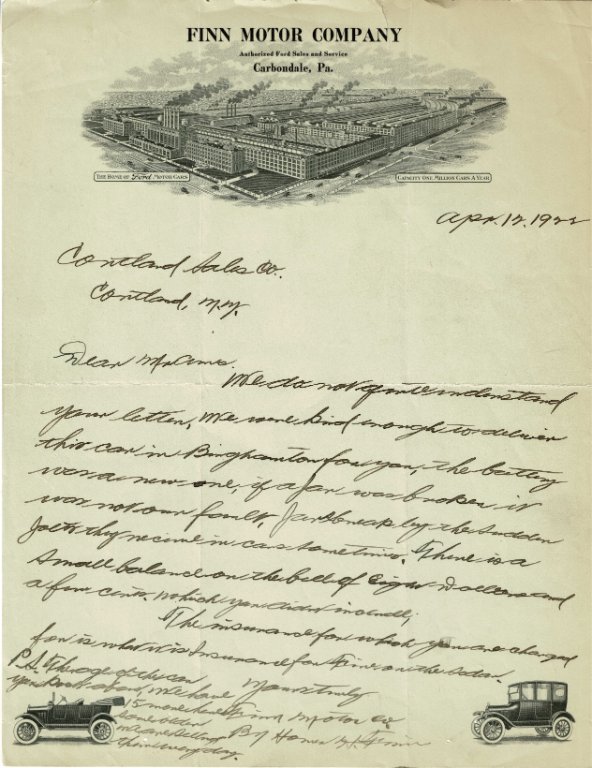 FINN MOTOR COMPANY
Authorized Ford Sales and Service
Carbondale, Pa.
THE HOME OF Ford MOTOR CARS
CAPACITY ONE MILLION CARS A YEAR
Apr. 12, 1922
Cortland Sales Co.
Cortland, N.Y.
Dear Mr Ames.
We do not quite understand
your letter, We were kind enough to deliver
this car in Binghamton for you, the battery
was a new one, if a jar was broken it
was not our fault, Jars break by the sudden
jolts they receive in cars sometimes. There is a
small balance on the bill of Eight Dollars and
a few cents. which you didn't include,
The insurance for which you are charged
for is what it is Insurance for Fire on the Sedan.
P.S. The age of the car
you kick about, We have
15 more here
some older
and are selling
them every day.
Yours truly
Finn Motor Co
By Homer Finn